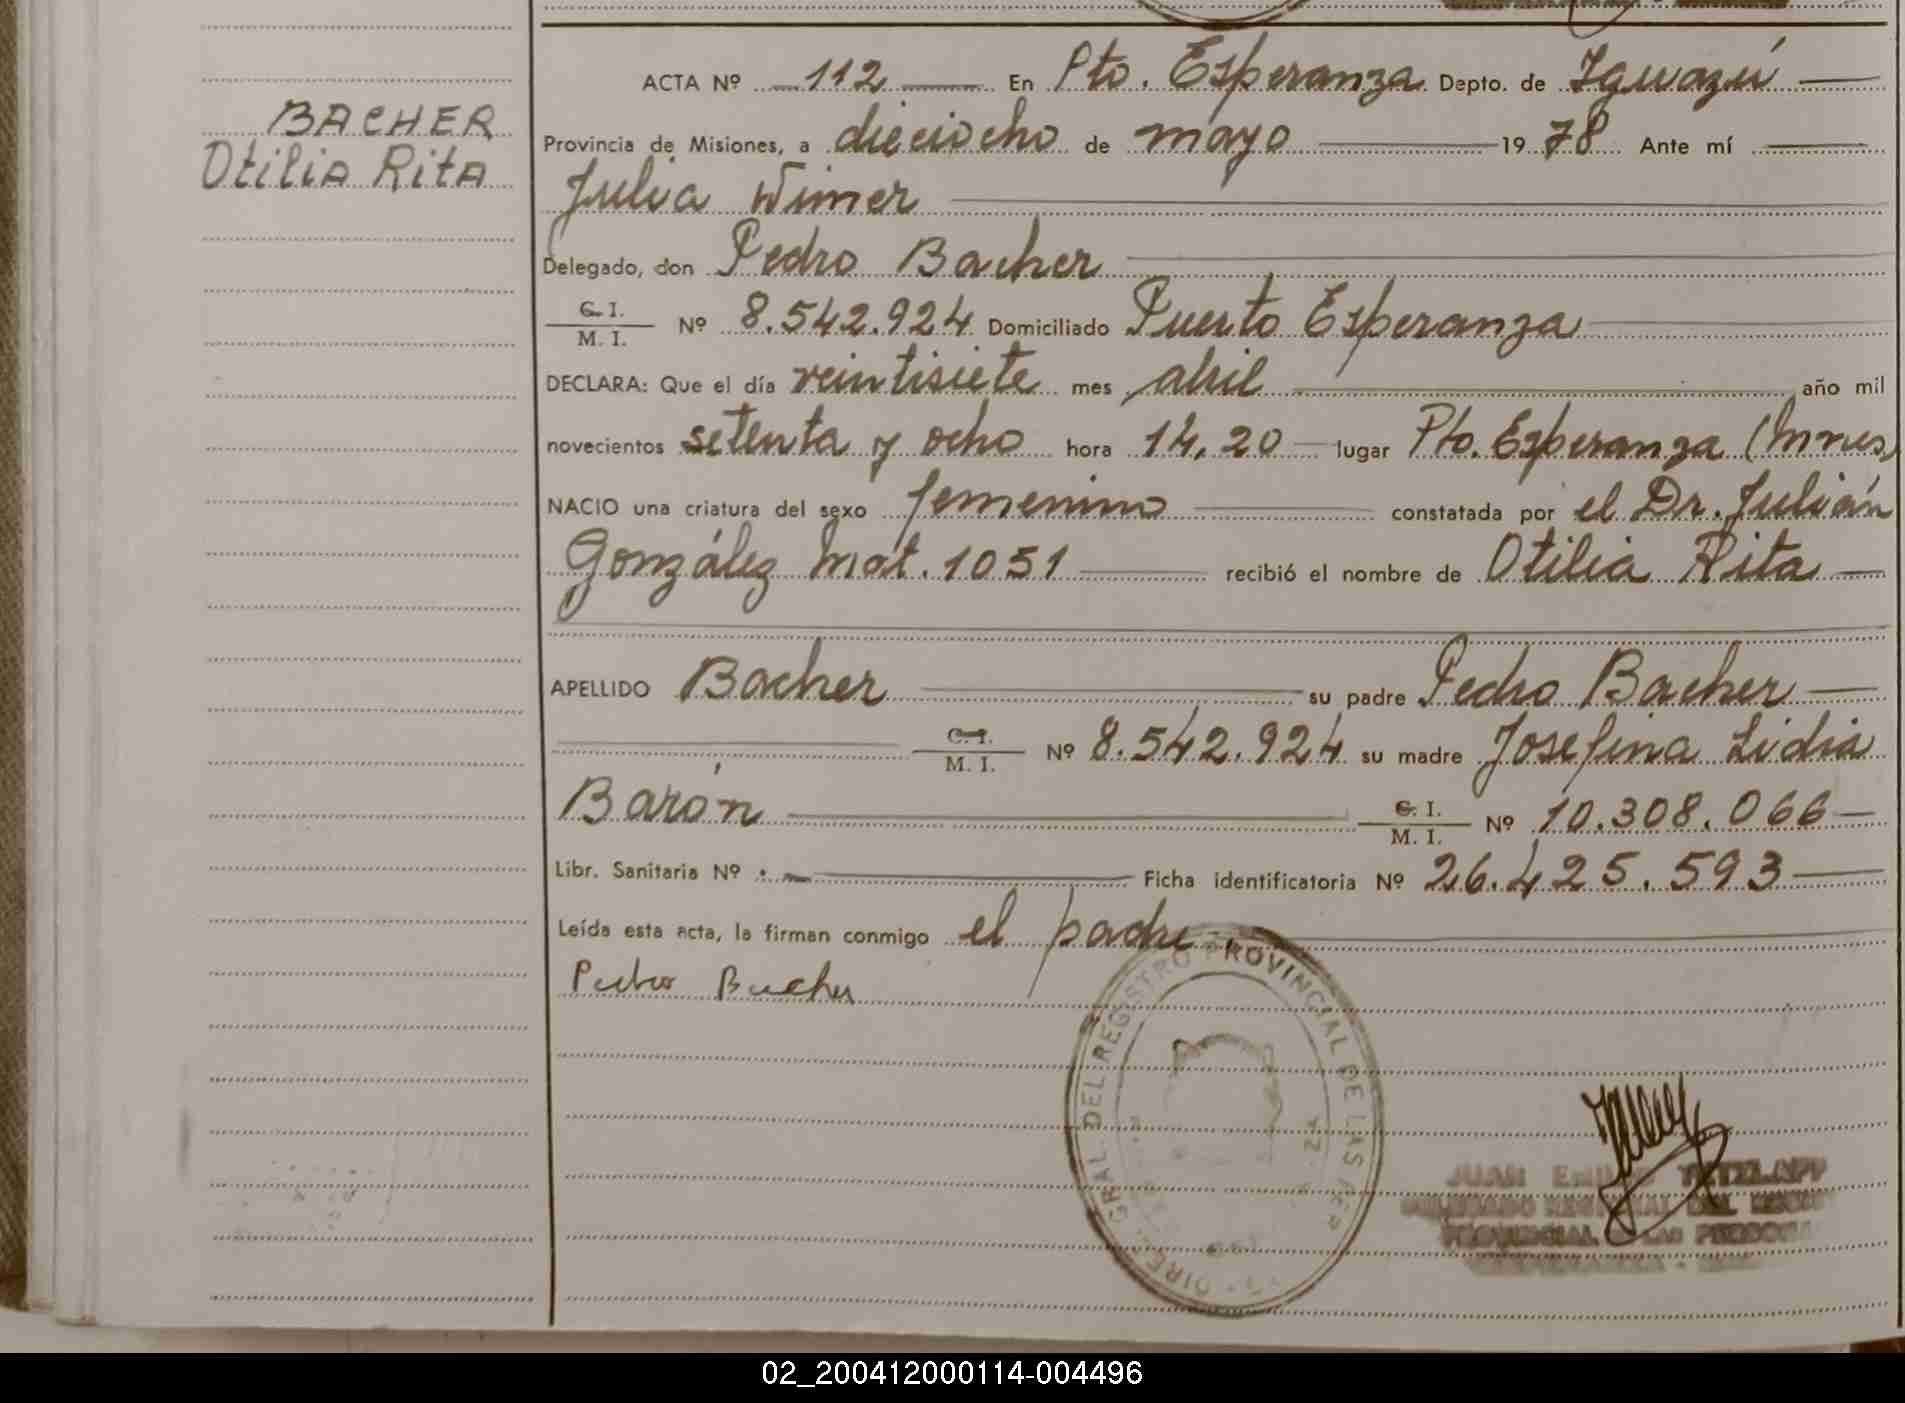 BACHER
Otilia Rita
ACTA Nº 112 En Pto. Esperanza Depto. de Iguazú
Provincia de Misiones, a dieciocho de mayo 1978 Ante mí
Julia Wimer
Delegado, don Pedro Bacher
C. I.
M. I. Nº 8.542.924 Domiciliado Puerto Esperanza
DECLARA: Que el día veintisiete mes abril año mil
novecientos setenta y ocho hora 14,20 lugar Pto. Esperanza (Mnes)
NACIO una criatura del sexo femenino constatada por el Dr. Julián
González Mat. 1051 recibió el nombre de Otilia Rita
APELLIDO Bacher su padre Pedro Bacher
C. I.
M. I. Nº 8.542.924 su madre Josefina Lidia
Barón C. I.
M. I. Nº 10.308.066
Libr. Sanitaria Nº Ficha identificatoria Nº 26.425.593
Leída esta acta, la firman conmigo el padre
Pedro Bacher
DIRE. GRAL. DEL REGISTRO PROVINCIAL DE LAS PER
JUAN
DELEGADO REGIONAL DEL
PROVINCIAL
02_200412000114-004496